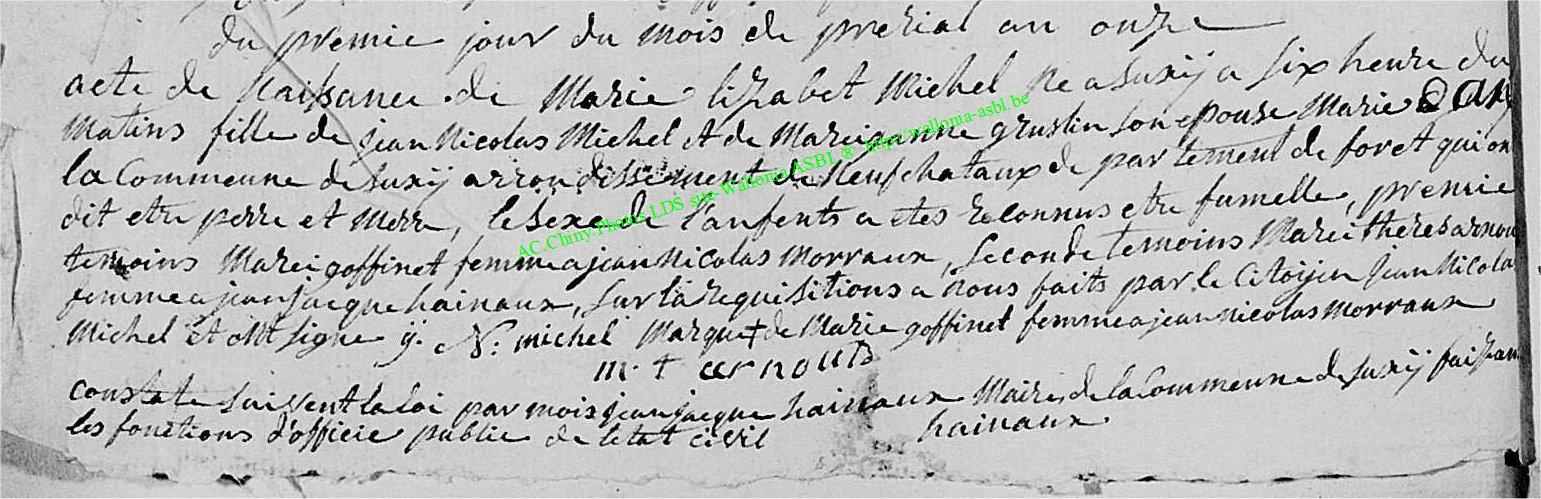 du premie jour du mois de prerial an onze
acte de Naissance de Marie lizabet Michel Ne a Suxij a six heure du
matins fille de jean Nicolas Michel et de Marei janne gruslin son epouse Marie Dan
la Commeune de Suxij arrondissement de Neufchataux de partement de foret qui on
dit etre perre et merre, le sexe de l'anfents a etes reconnus etre fumelle, premie
temoins Marei goffinet femme a jean nicolas morraux, seconde temoins Marei theres arnou
femme a jean jacque hainaux, sur la requisitions a nous faits par le Citoijen jean Nicola
Michel et ont signe ij. N: michel Marque + de Marie goffinet femme a jean nicolas morraux
m. t arnould
constate suivent la loi par mois jean jacque hainaux Maire de la Commeune de Suxij faissan
les fonctions d'officie public de letat civil hainaux
AC Chiny Photos LDS site-Wallonia ASBL ® http://wallonia-asbl.be